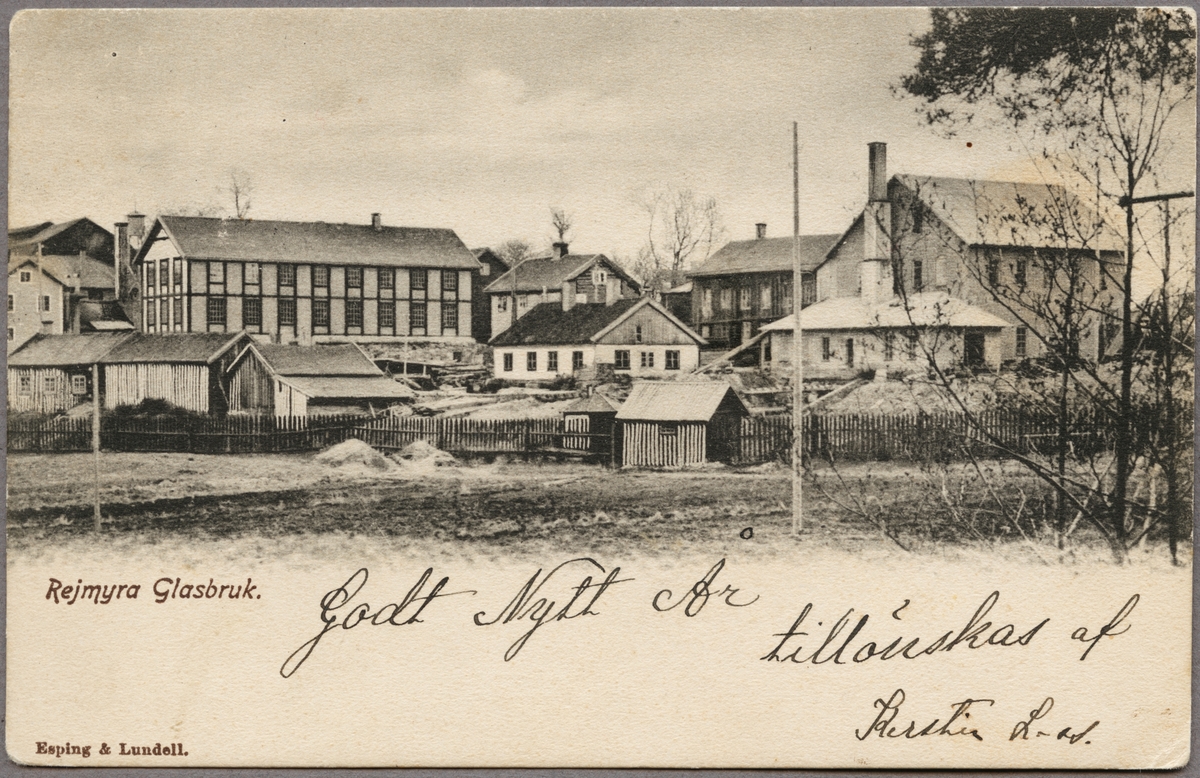 Rejmyra Glasbruk.
Godt Nytt År
tillönskas af
Kerstin L-as.
Esping & Lundell.